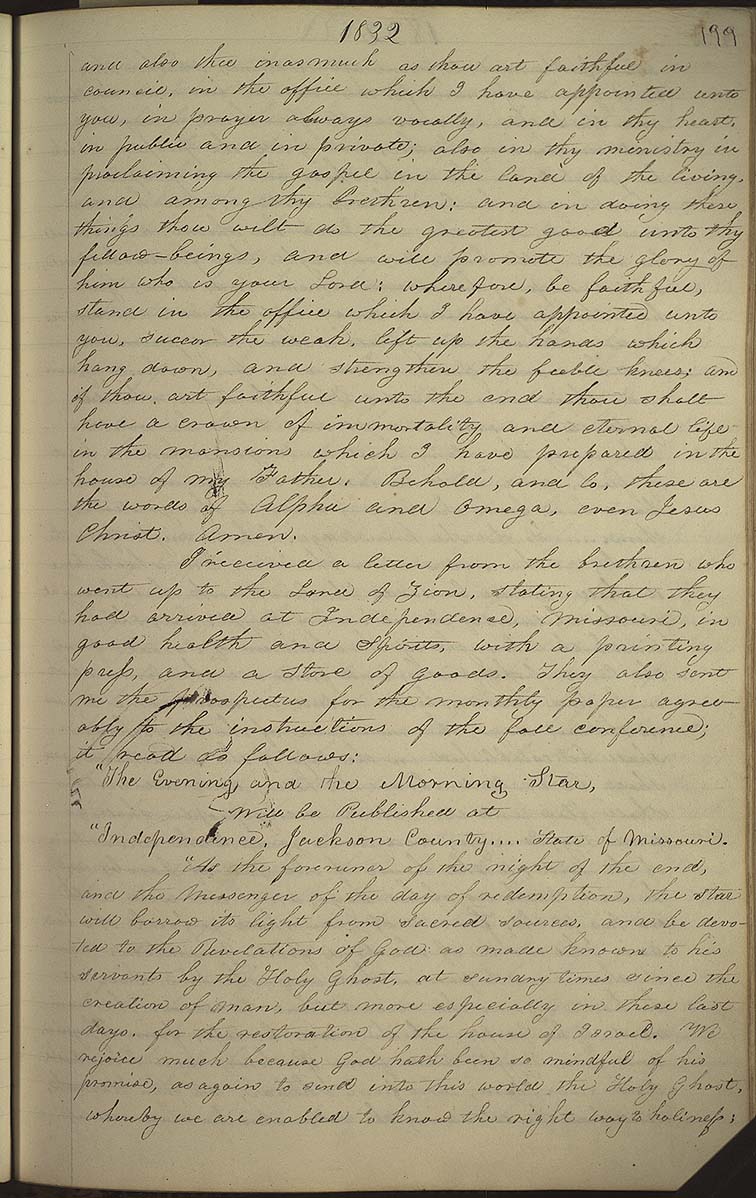 1832
199
and also thee inasmuch as thou art faithful in
council, in the office which I have appointed unto
you, in prayer always vocally, and in thy heart,
in public and in private; also in thy ministry in
proclaiming the gospel in the land of the living,
and among thy brethren: and in doing these
things thou wilt do the greatest good unto thy
fellow-beings, and will promote the glory of
him who is your Lord: wherefore, be faithful,
stand in the office which I have appointed unto
you, succor the weak, lift up the hands which
hang down, and strengthen the feeble knees; and
if thou art faithful unto the end thou shalt
have a crown of immortality and eternal life
in the mansions which I have prepared in the
house of my Father. Behold, and lo, these are
the words of Alpha and Omega, even Jesus
Christ. Amen.
I received a letter from the brethren who
went up to the Land of Zion, stating that they
had arrived at Independence, Missouri, in
good health and spirits, with a printing
press, and a store of goods. They also sent
me the prospectus for the monthly paper agree-
ably to the instructions of the fall conference;
it read as follows:
"The Evening and the Morning Star,
Will be Published at
"Independence, Jackson County.... State of Missouri.
"As the forerunner of the night of the end,
and the Messenger of the day of redemption, the Star
will borrow its light from sacred sources, and be devo-
ted to the Revelations of God as made known to his
servants by the Holy Ghost, at sundry times since the
creation of man, but more especially in these last
days, for the restoration of the house of Israel. We
rejoice much because God hath been so mindful of his
promise, as again to send into this world the Holy Ghost,
whereby we are enabled to know the right way to holiness;